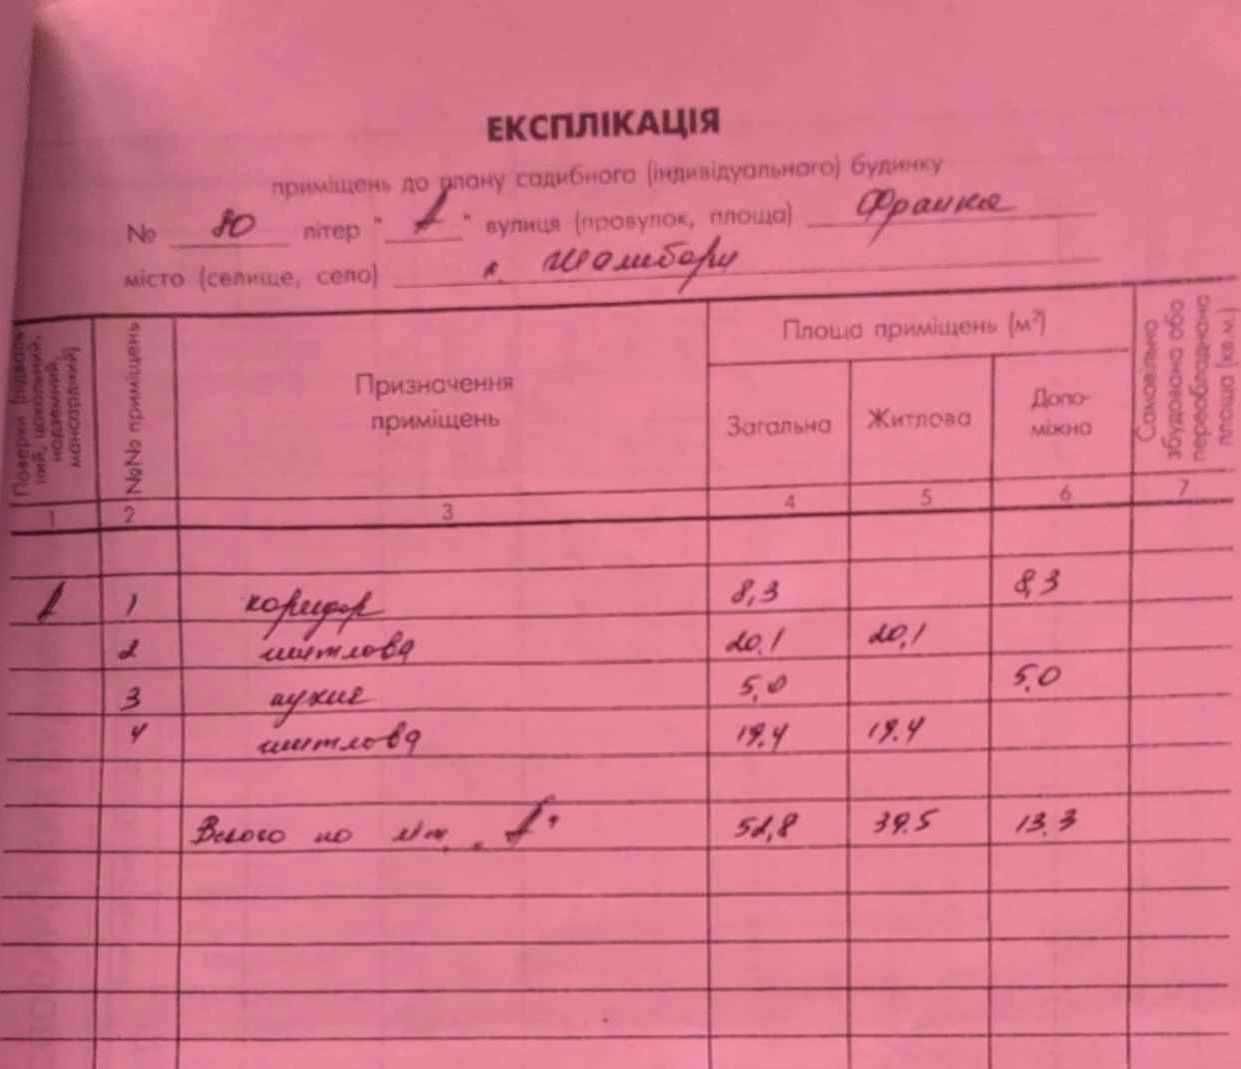 ЕКСПЛІКАЦІЯ
приміщень до плану садибного (індивідуального) будинку
№ 80 літер " " вулиця (провулок, площа) Франка
місто (селище, село) с.
Поверхи (підвальний, цокольний, надземний, мансардний)
№№ приміщень
Призначення
приміщень
Площа приміщень (м²)
Загальна Житлова Допо-
міжна
Самовільно збудована або переобладнана площа (кв.м.)
1 2 3 4 5 6 7
1 1 коридор 8,3 8,3
2 житлова 20,1 20,1
3 кухня 5,0 5,0
4 житлова 19.4 19.4
Всього по літ. 52,8 39.5 13.3